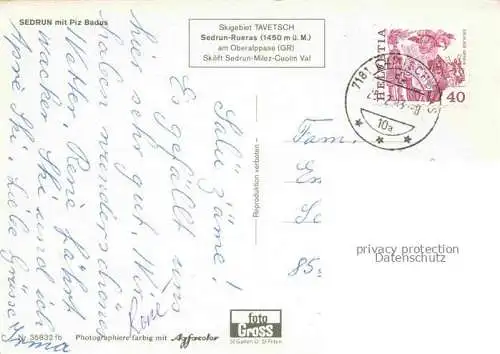 SEDRUN mit Piz Badus
Skigebiet TAVETSCH
Sedrun-Rueras (1450 m ü. M.)
am Oberalppass (GR)
Skilift Sedrun-Milez-Cuolm Val
HELVETIA
40
7181
10a
Salü zäme!
Es gefällt uns
hier sehr gut. Wir
haben wunderschönes
Wetter. René fährt
wacker Ski und ich
Apré Ski. Liebe Grüsse
Irma
René
Reproduktion verboten
Fam.
85
privacy protection
DATENSCHUTZ
Nr. 35832 fb
Photographiere farbig mit Agfacolor
foto
Gross
St Gallen